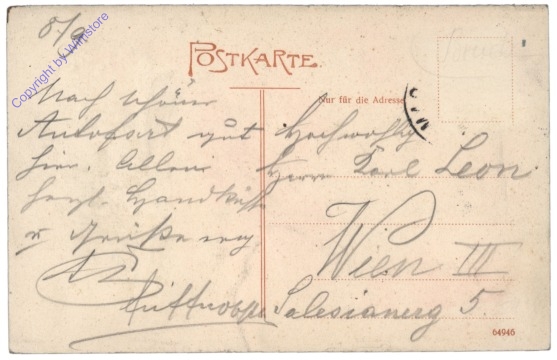 8/9
Copyright by Winistore
POSTKARTE.
Nur für die Adresse
Nach schöner
Autofahrt gut
hier. Allen
herzl. Handküsse
u Grüße
Hochwohlg
Herrn Karl Leon
Wien III
Salesianerg 5.
64946